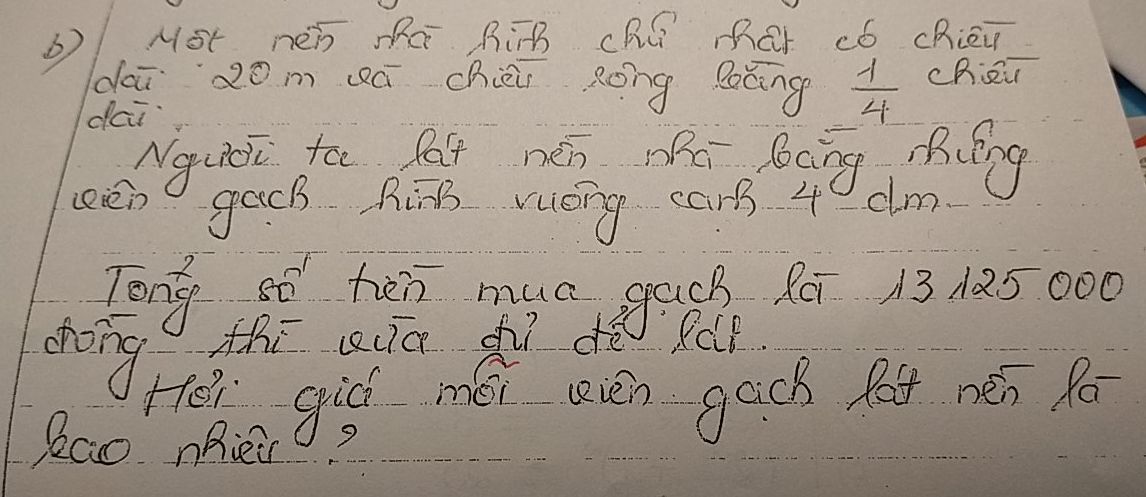 b) Một nền nhà hình chữ nhật có chiều
dài 20 m và chiều rộng bằng 1/4 chiều
dài.
Người ta lát nền nhà bằng những
viên gạch hình vuông cạnh 4 dm.
Tổng số tiền mua gạch là 13 125 000
đồng thì vừa đủ để lát.
Hỏi giá mỗi viên gạch lát nền là
bao nhiêu?